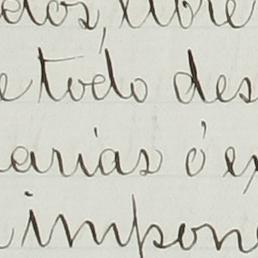 dos, libre
e todo des
arias ó ex
impone